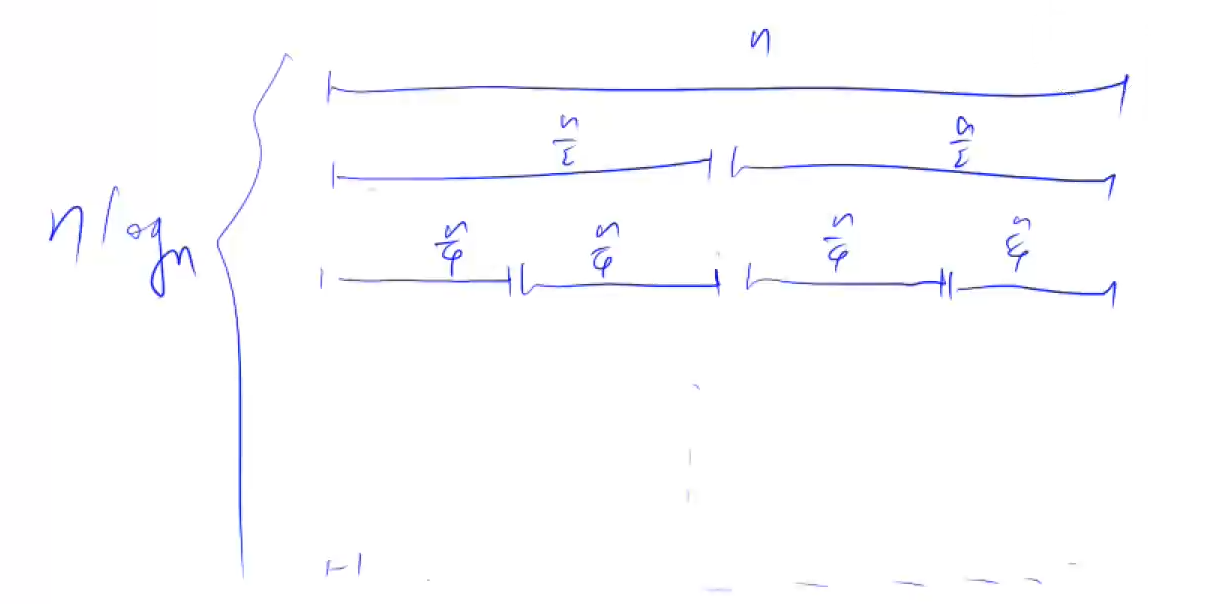 n
n/2 n/2
n log n
n/4 n/4 n/4 n/4